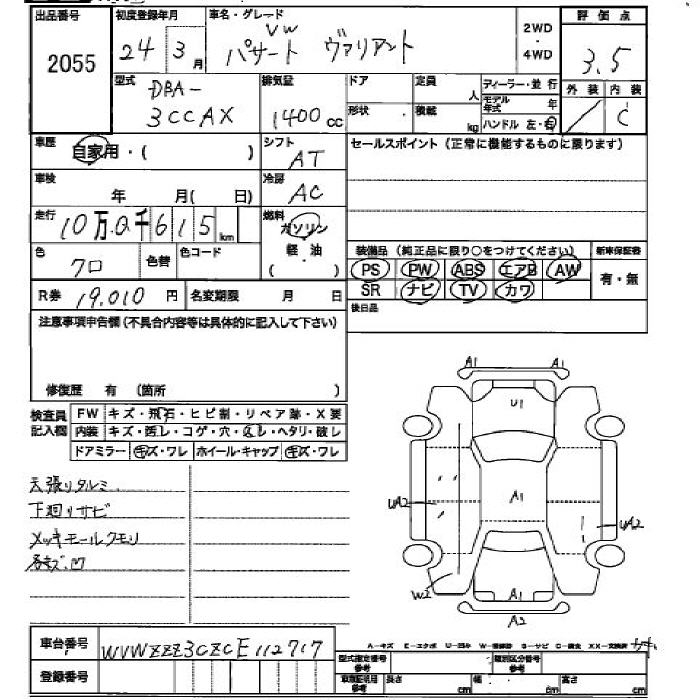 出品番号
2055
初度登録年月
24年3月
車名・グレード
VW
パサート ヴァリアント
2WD
・
4WD
評価点
3.5
外装 内装
C
型式
DBA-
3CCAX
排気量
1400cc
ドア
定員
人
形状
積載
kg
ディーラー・並行
モデル年式 年
ハンドル 左・右
車歴
自家用・( )
シフト
AT
セールスポイント(正常に機能するものに限ります)
車検
年 月( 日)
冷房
AC
走行
10万0千615km
燃料
ガソリン
軽・油
( ・ )
色
クロ
色替
色コード
装備品(純正品に限り○をつけてください)
新車保証書
PS PW ABS エアB AW
有・無
SR ナビ TV カワ
R券 19,010円
名変期限 月 日
後日品
注意事項申告欄(不具合内容等は具体的に記入して下さい)
修復歴 有 (箇所 )
検査員記入欄
FW キズ・飛石・ヒビ割・リペア跡・X要
内装 キズ・汚レ・コゲ・穴・スレ・ヘタリ・破レ
ドアミラー キズ・ワレ ホイール・キャップ キズ・ワレ
天張りタルミ
下廻りサビ
メッキモールクモリ
各キズ.凹
A1 A1
U1
A1
UA2
UA2
W2
A1
A2
車台番号
WVWZZZ3CZCE112717
登録番号
A-キズ E-エクボ U-凹み W-補修跡 S-サビ C-腐食 XX-交換済
型式指定番号
参考
類別区分番号
参考
車庫証明用
参考
長さ cm
幅 cm
高さ cm